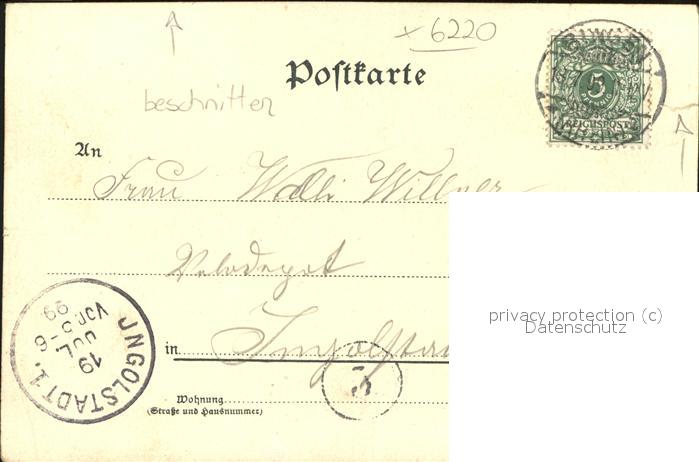 × 6220
Postkarte
beschnitten
5
REICHSPOST
An
Frau Wolli Willner
Velodepot
in Ingolsta
Wohnung
(Straße und Hausnummer)
JNGOLSTADT 1.
19
JUL
5-6
VOR
99
privacy protection (c)
Datenschutz